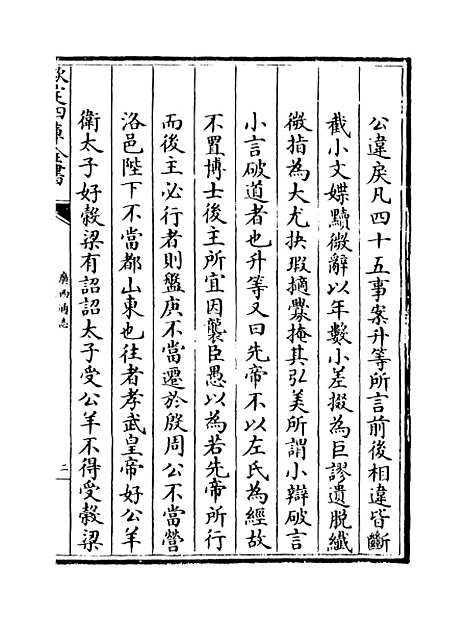 公違戾凡四十五事案升等所言前後相違皆斷
截小文媟黷微辭以年數小差掇為巨謬遺脫纖
微指為大尤抉瑕摘釁掩其弘美所謂小辯破言
小言破道者也升等又曰先帝不以左氏為經故
不置博士後主所宜因襲臣愚以為若先帝所行
而後主必行者則盤庚不當遷於殷周公不當營
洛邑陛下不當都山東也往者孝武皇帝好公羊
衛太子好穀梁有詔詔太子受公羊不得受穀梁
欽定四庫全書
廣西通志
二